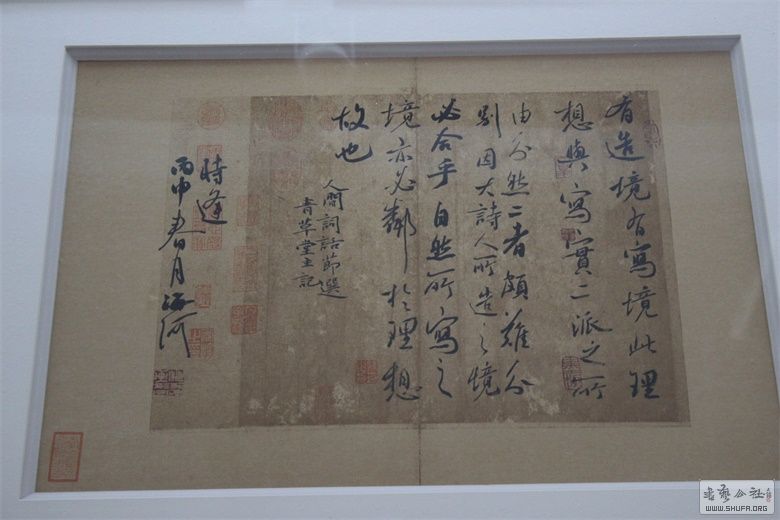 有造境有寫境此理
想與寫實二派之所
由分然二者頗難分
別因大詩人所造之境
必合乎自然所寫之
境亦必鄰於理想
故也
人間詞話節選
青草堂主記
時逢
丙申春月
WWW.SHUFA.ORG